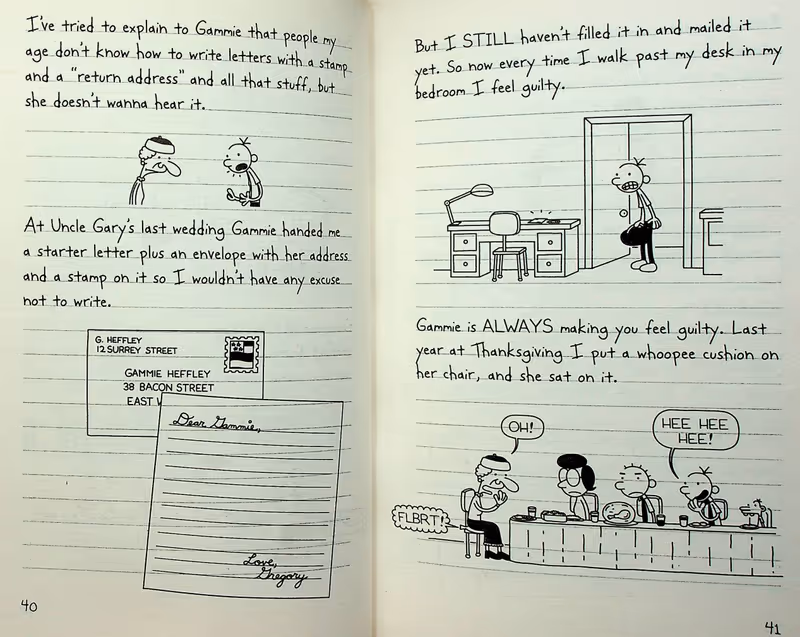 I've tried to explain to Gammie that people my
age don't know how to write letters with a stamp
and a "return address" and all that stuff, but
she doesn't wanna hear it.
At Uncle Gary's last wedding Gammie handed me
a starter letter plus an envelope with her address
and a stamp on it so I wouldn't have any excuse
not to write.
G. HEFFLEY
12 SURREY STREET
GAMMIE HEFFLEY
38 BACON STREET
EAST
Dear Gammie,
Love,
Gregory
40
But I STILL haven't filled it in and mailed it
yet. So now every time I walk past my desk in my
bedroom I feel guilty.
Gammie is ALWAYS making you feel guilty. Last
year at Thanksgiving I put a whoopee cushion on
her chair, and she sat on it.
OH!
HEE HEE
HEE!
FLBRT!
41